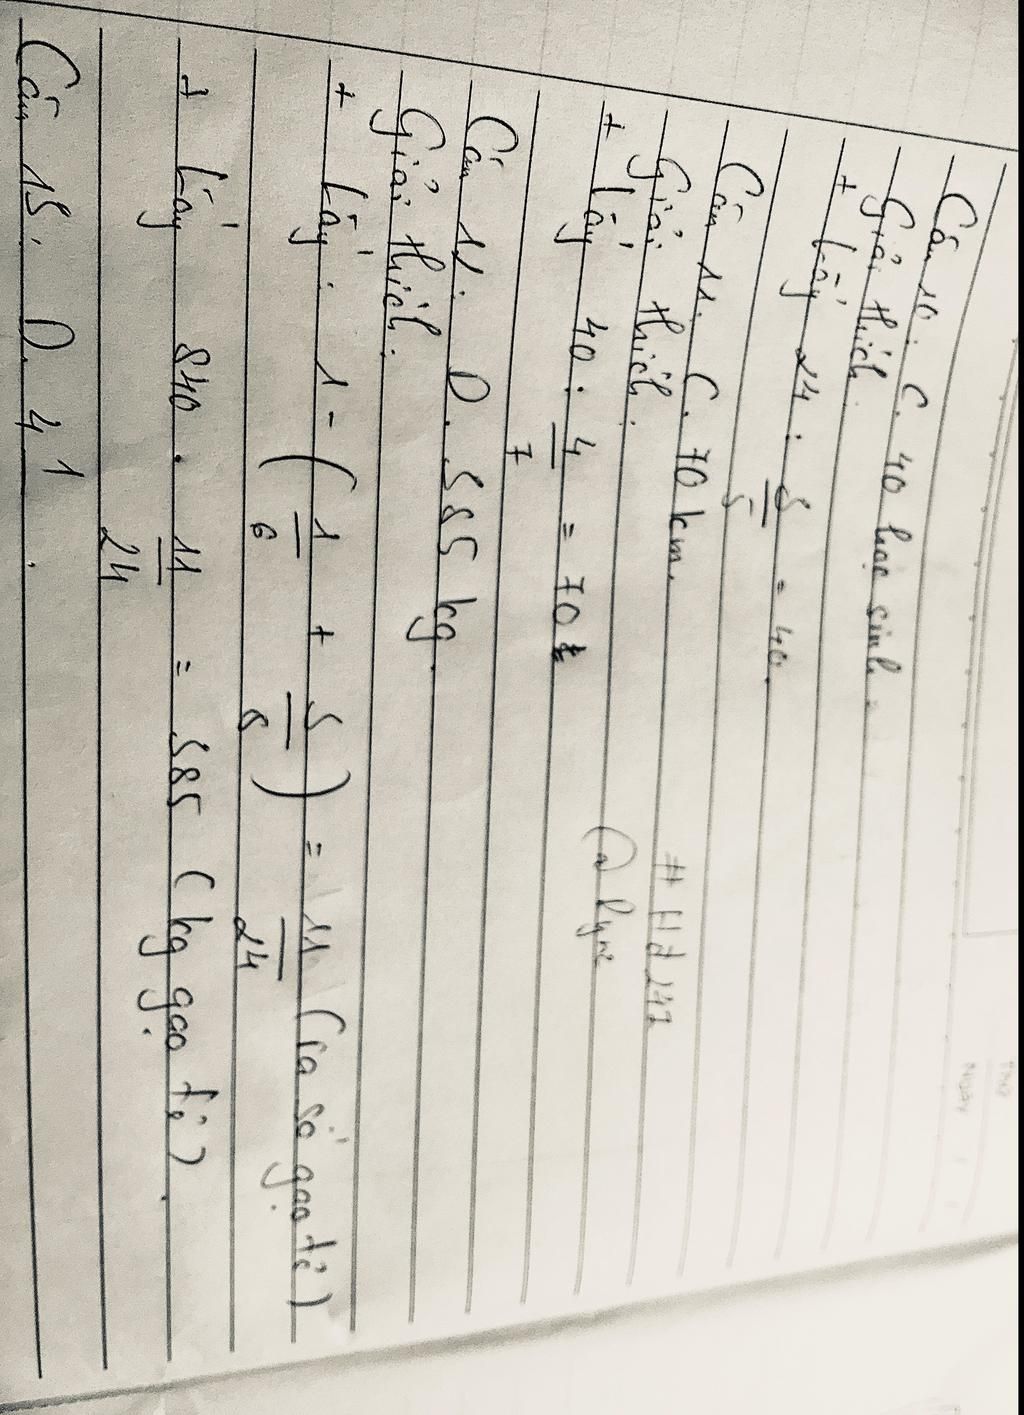 Câu 10. C. 40 học sinh.
Giải thích.
+ Lấy 24 : 5/5 = 40.
Câu 11. C. 70 km.
Giải thích.
+ Lấy 40 : 4/7 = 70
Câu 11. D. 385 kg.
Giải thích.
+ Lấy : 1 - ( 1/6 + 5/8 ) = 11/24 (ra số gạo tẻ)
+ Lấy 840 . 11/24 = 385 (kg gạo tẻ).
Câu 15: D. 4¹.
# Hd247